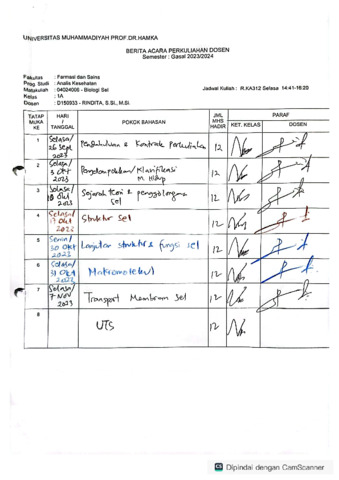 UNIVERSITAS MUHAMMADIYAH PROF.DR.HAMKA
BERITA ACARA PERKULIAHAN DOSEN
Semester : Gasal 2023/2024
Fakultas : Farmasi dan Sains
Prog. Studi : Analis Kesehatan
Matakuliah : 04024006 - Biologi Sel
Jadwal Kuliah : R.KA312 Selasa 14:41-16:20
Kelas : 1A
Dosen : D150933 - RINDITA, S.Si., M.Si.
TATAP MUKA KE HARI / TANGGAL POKOK BAHASAN JML MHS HADIR PARAF
KET. KELAS DOSEN
1 Selasa/ 26 Sept 2023 Pendahuluan & Kontrak Perkuliahan 12
2 Selasa/ 3 Okt 2023 Pengelompokkan/Klasifikasi m. Hidup 12
3 Selasa/ 10 Okt 2023 Sejarah Teori & penggolongan sel 12
4 Selasa/ 17 Okt 2023 Struktur Sel 12
5 Senin/ 30 Okt 2023 Lanjutan struktur & fungsi sel 12
6 Selasa/ 31 Okt 2023 Makromolekul 12
7 Selasa/ 7 Nov 2023 Transport Membran Sel 12
8 UTS 12
CS Dipindai dengan CamScanner